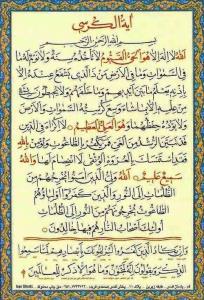 آية الكرسي
بسم الله الرحمن الرحيم
الله لا اله الا هو الحي القيوم لا تأخذه سنة ولا نوم له ما في
السموات وما في الارض من ذا الذي يشفع عنده الا
باذنه يعلم ما بين ايديهم وما خلفهم ولا يحيطون بشيء
من علمه الا بما شاء وسع كرسيه السموات والارض
ولا يؤده حفظهما وهو العلي العظيم لا اكراه في الدين
قد تبين الرشد من الغي فمن يكفر بالطاغوت ويؤمن
بالله فقد استمسك بالعروة الوثقى لا انفصام لها والله
سميع عليم الله ولي الذين آمنوا يخرجهم من
الظلمات الى النور والذين كفروا اولياؤهم
الطاغوت يخرجونهم من النور الى الظلمات
اولئك اصحاب النار هم فيها خالدون
وان يكاد الذين كفروا ليزلقونك بابصارهم لما سمعوا
الذكر ويقولون انه لمجنون وما هو الا ذكر للعالمين